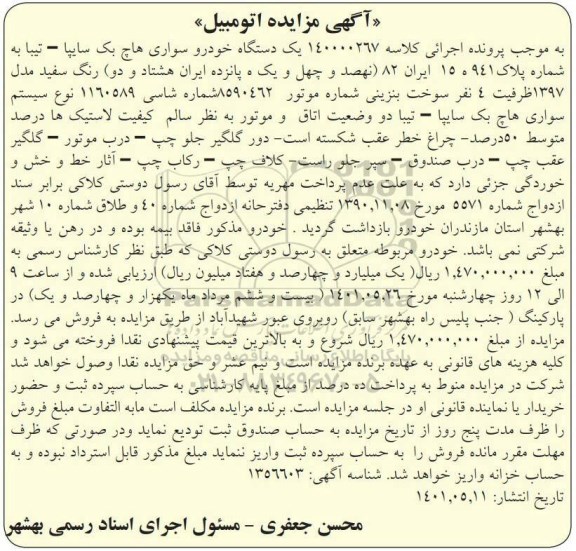 «آگهی مزایده اتومبیل»
به موجب پرونده اجرائی کلاسه ۱۴۰۰۰۰۲۶۷ یک دستگاه خودرو سواری هاچ بک سایپا – تیبا به
شماره پلاک۹۴۱ ه ۱۵ ایران ۸۲ (نهصد و چهل و یک ه پانزده ایران هشتاد و دو) رنگ سفید مدل
۱۳۹۷ظرفیت ۴ نفر سوخت بنزینی شماره موتور ۸۵۹۰۴۶۲شماره شاسی ۱۱۶۰۵۸۹ نوع سیستم
سواری هاچ بک سایپا – تیبا دو وضعیت اتاق و موتور به نظر سالم کیفیت لاستیک ها درصد
متوسط ۵۰درصد- چراغ خطر عقب شکسته است- دور گلگیر جلو چپ – درب موتور – گلگیر
عقب چپ – درب صندوق – سپر جلو راست- کلاف چپ – رکاب چپ – آثار خط و خش و
خوردگی جزئی دارد که به علت عدم پرداخت مهریه توسط آقای رسول دوستی کلاکی برابر سند
ازدواج شماره ۵۵۷۱ مورخ ۱۳۹۰,۱۱,۰۸ تنظیمی دفترخانه ازدواج شماره ۴۰ و طلاق شماره ۱۰ شهر
بهشهر استان مازندران خودرو بازداشت گردید . خودرو مذکور فاقد بیمه بوده و در رهن یا وثیقه
شرکتی نمی باشد. خودرو مربوطه متعلق به رسول دوستی کلاکی که طبق نظر کارشناس رسمی به
مبلغ ۱,۴۷۰,۰۰۰,۰۰۰ ریال( یک میلیارد و چهارصد و هفتاد میلیون ریال) ارزیابی شده و از ساعت ۹
الی ۱۲ روز چهارشنبه مورخ ۱۴۰۱,۰۵,۲۶ (بیست و ششم مرداد ماه یکهزار و چهارصد و یک) در
پارکینگ ( جنب پلیس راه بهشهر سابق) روبروی عبور شهیدآباد از طریق مزایده به فروش می رسد.
مزایده از مبلغ ۱,۴۷۰,۰۰۰,۰۰۰ ریال شروع و به بالاترین قیمت پیشنهادی نقدا فروخته می شود و
کلیه هزینه های قانونی به عهده برنده مزایده است و نیم عشر و حق مزایده نقدا وصول خواهد شد
شرکت در مزایده منوط به پرداخت ده درصد از مبلغ پایه کارشناسی به حساب سپرده ثبت و حضور
خریدار یا نماینده قانونی او در جلسه مزایده است. برنده مزایده مکلف است مابه التفاوت مبلغ فروش
را ظرف مدت پنج روز از تاریخ مزایده به حساب صندوق ثبت تودیع نماید ودر صورتی که ظرف
مهلت مقرر مانده فروش را به حساب سپرده ثبت واریز ننماید مبلغ مذکور قابل استرداد نبوده و به
حساب خزانه واریز خواهد شد. شناسه آگهی: ۱۳۵۶۶۰۳
تاریخ انتشار: ۱۴۰۱,۰۵,۱۱
محسن جعفری - مسئول اجرای اسناد رسمی بهشهر